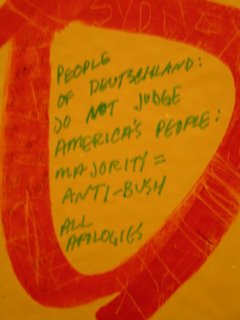 PEOPLE
OF DEUTSCHLAND:
DO NOT JUDGE
AMERICA'S PEOPLE:
MAJORITY =
ANTI-BUSH
ALL
APOLOGIES